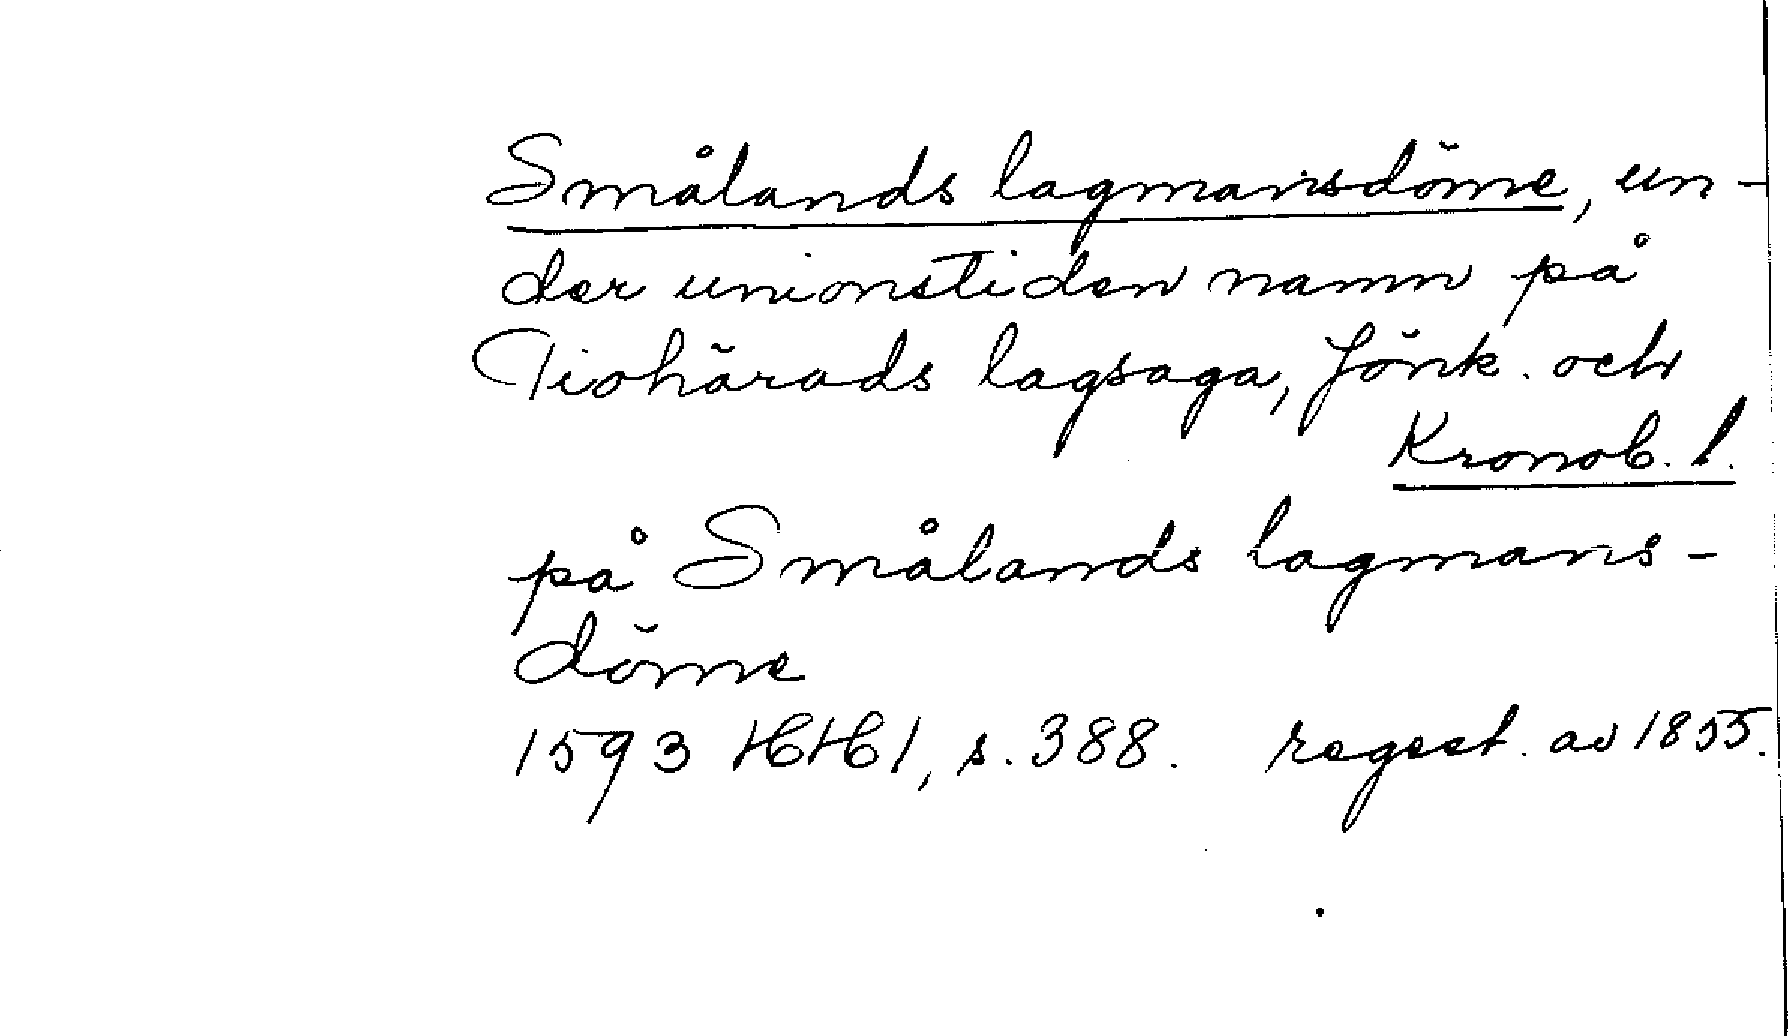 Smålands lagmansdöme, un-
der unionstiden namn på
Tiohärads lagsaga, Jönk. och
Kronob. l.
på Smålands lagmans-
döme
1593 HH 1, s. 388. regest. av 1855.